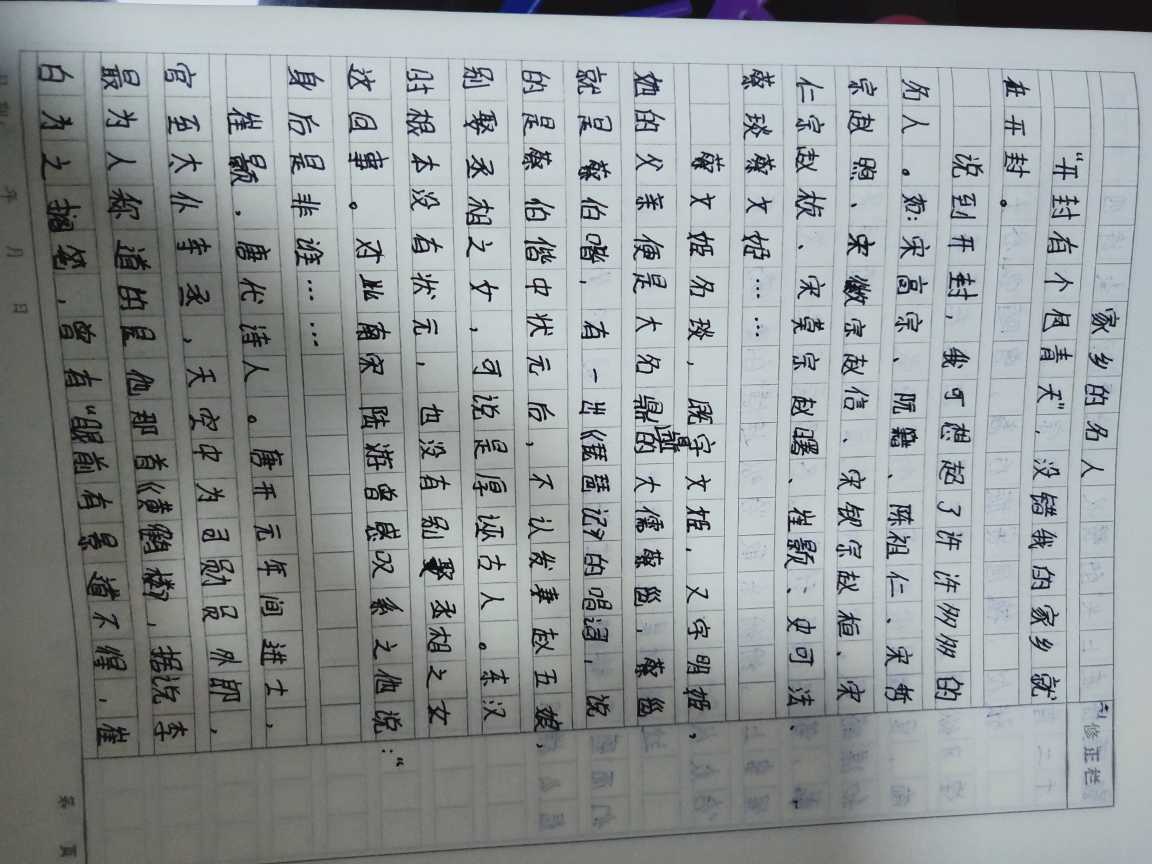 家乡的名人
“开封有个包青天”，没错我的家乡就
在开封。
说到开封，我可想起了许许多多的
名人。如：宋高宗、阮籍、陈祖仁、宋哲
宗赵煦、宋徽宗赵信、宋钦宗赵桓、宋
仁宗赵祯、宋英宗赵曙、崔颢、史可法、
蔡琰蔡文姬……
蔡文姬名琰，既字文姬，又字明姬，
她的父亲便是大名鼎鼎的大儒蔡邕，蔡邕
就是蔡伯喈，有一出《琵琶记》的唱词，说
的是蔡伯喈中状元后，不认发妻赵五娘，
别娶丞相之女，可说是厚诬古人。东汉
时根本没有状元，也没有别娶丞相之女
这回事。对此南宋陆游曾感叹系之他说：“
身后是非谁……
崔颢，唐代诗人。唐开元年间进士，
官至太仆寺丞，天宝中为司勋员外郎，
最为人称道的是他那首《黄鹤楼》，据说李
白为之搁笔，曾有“眼前有景道不得，崔
修正栏
年 月 日
第 页